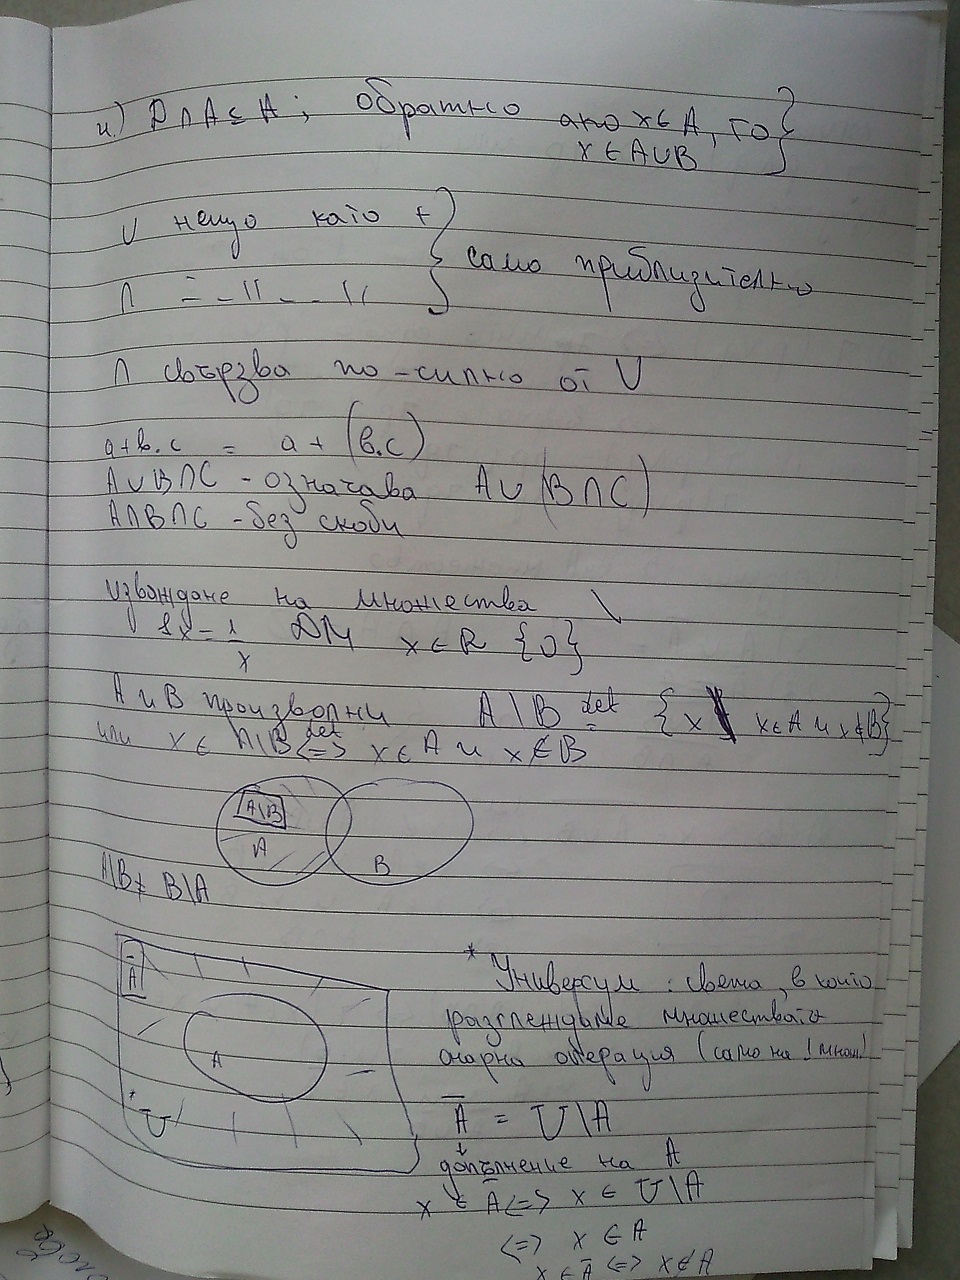 и.) P∩A⊆A; обратно ако x∈A, то
x∈A∪B
∪ нещо като +
∩ – –||– –||
само приблизително
∩ свързва по-силно от ∪
a+b.c = a + (b.c)
A∪B∩C - означава A∪(B∩C)
A∩B∩C - без скоби
изваждане на множества \
x ДМ x∈R {0}
A и B произволни A\B def = {x | x∈A и x∉B}
или x∈A\B def <=> x∈A и x∉B
A\B
A
B
A\B ≠ B\A
Ā
A
* U
* Универсум : света, в който
разглеждаме множествата
операция (само на 1 множ)
Ā = U\A
допълнение на A
x∈Ā <=> x∈U\A
<=> x∈A
x∈Ā <=> x∉A